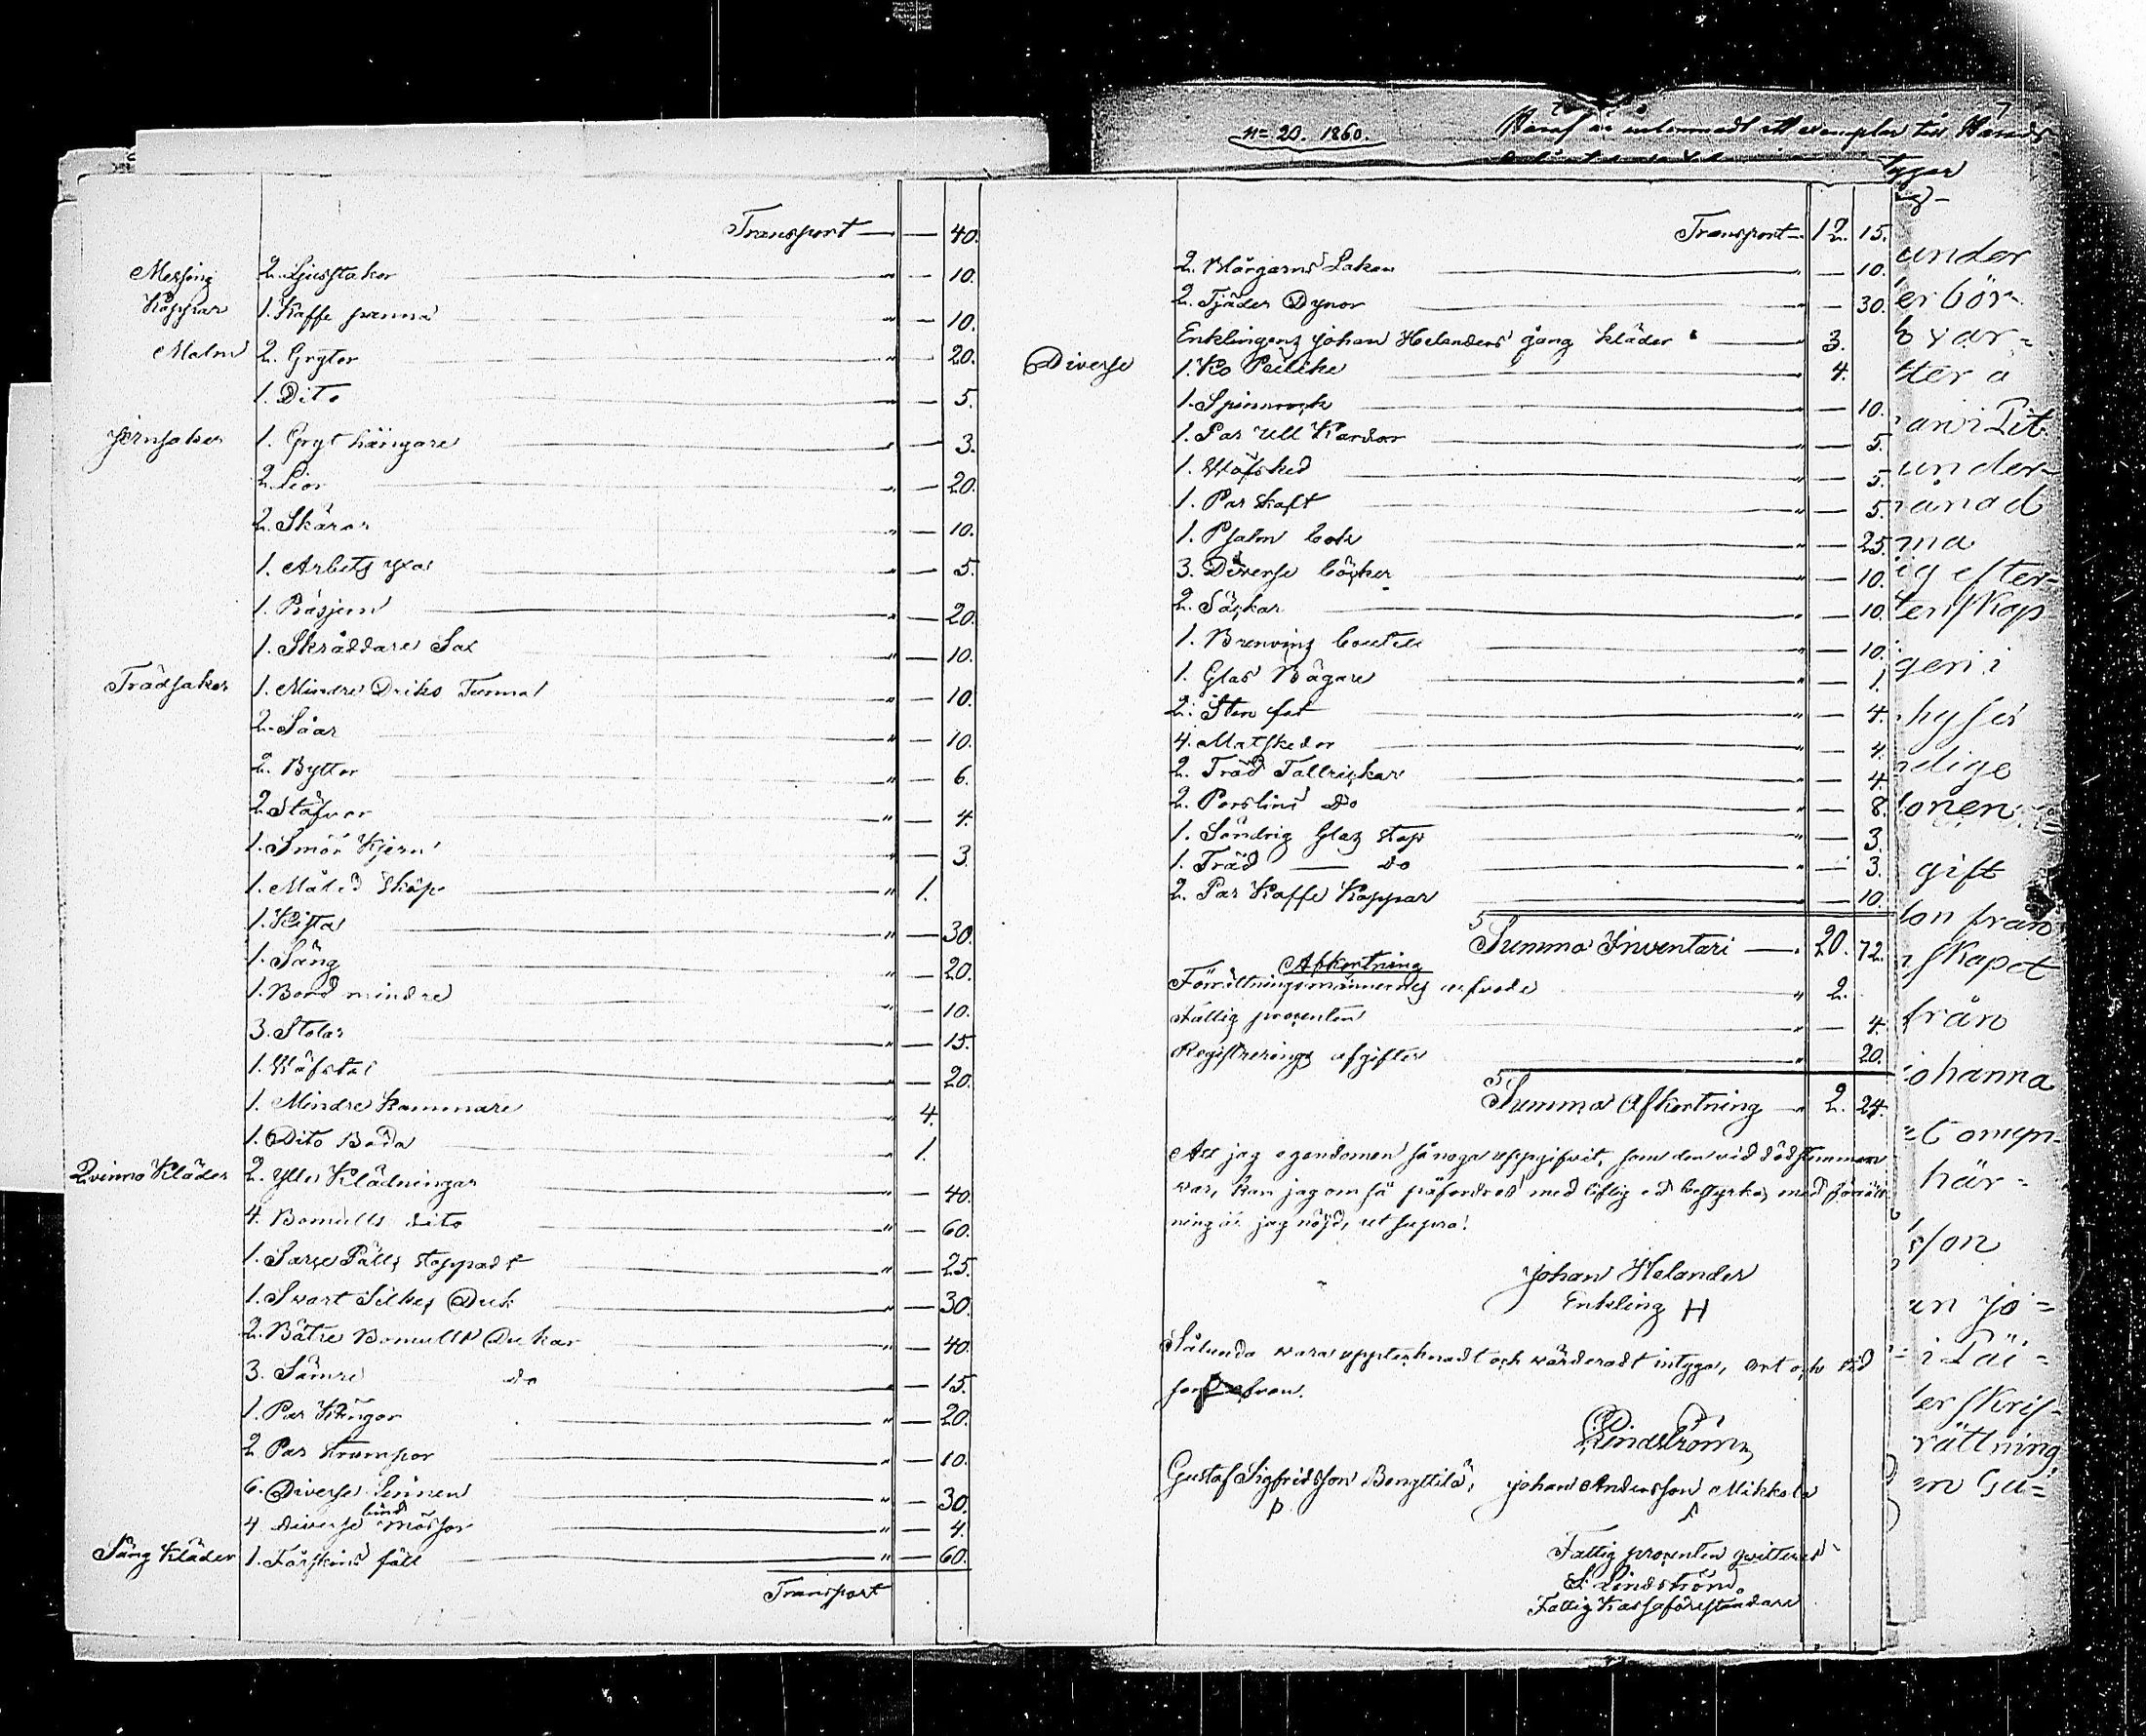 Transport — — 40.
Messing 2. Ljusstakar " — 10.
Koppar 1. Kaffe panna " — 10.
Malm 2. Grytor " — 20.
1. Dito " — 5.
Jernsaker 1. Gryt hängare " — 3.
2. Lior " — 20.
2. Skäror " — 10.
1. Arbets yxa " — 5.
1. Råsjern " — 20.
1. Skräddare Sax " — 10.
Trädsaker 1. Mindre Dricks Tunna " — 10.
2. Såar " — 10.
2. Byttor " — 6.
2. Stäfvor " — 4.
1. Smör Kjerna " — 3.
1. Målad Skåp " 1.
1. Kista " — 30.
1. Säng " — 20.
1. Bord mindre " — 10.
3. Stolar " — 15.
1. Wäfstol " — 20.
1. Mindre Kammare " 4.
1. Dito Boda " 1.
Qvinno Kläder 2. Ylle Klädningar " — 40.
4. Bomulls dito " — 60.
1. Sarge stoppadt " — 25.
1. Swart Silkes Duk " — 30.
2. Bätre Bomulls Dukar " — 40.
3. Sämre do " — 15.
1. Par Kängor " — 20.
2 Par Strumpor " — 10.
6. Diverse Linnen " — 30.
4 diverse mössor " — 4.
Säng Kläder 1. Fårskins fäll " — 60.
Transport
n= 20. 1860.
Häraf är ett exemplar till Härads
Transport — 12. 15.
2. Blårgarns Lakan " — 10.
2. Fjäder Dynor " — 30.
Enklingens Johan Helanders gång kläder 3.
Diverse 1. Ko 4.
1. Spinnrock " — 10.
1. Par Ull Kardor " — 5.
1. Wäfsked " — 5.
1. Par Skaft " — 5.
1. Psalm bok " — 25.
3. Diverse böcker " — 10.
2. Säckar " — 10.
1. Brenvins boutell " — 10.
1. Glas Bägare " — 1.
2. Sten fat " — 4.
4. Matskedar " — 4.
2. Träd Tallrickar " — 4.
2. Porslins do " — 8.
1. Söndrig Glas stop " — 3.
1. Träd — do " — 3.
2. Par Kaffe Koppar — 10.
Summa Inventari — 20. 72.
Afkortning
Förrättningsmännernes arfvode " 2.
Fattig procenten " — 4.
Registrerings afgiften " 20.
Summa Afkortning — 2. 24.
Att jag egendomen så noga uppgifvit, som den vid dödstimman
war, kan jag om så påfordras med liflig ed bestyrka, med förrätt
ning är jag nöjd, ut supra!
Johan Helander
Enkling H
Sålunda wara upptecknadt och wärderadt intyga, ort och tid
som ofvan.
Lindström
Gustaf Sigfridsson Bengttilä, Johan Andersson Mikkola
Fattig procenten qvitteras
S. Lindström
Fattig Kassaföreståndare
under
er bör-
hvar=
ter a
under-
månad
ma
ig efter-
tenskap
geri i
hyser
dige
onen
gift
son från
skapet
från
Johanna
här-
son
an Jo=
erskrif-
rättning